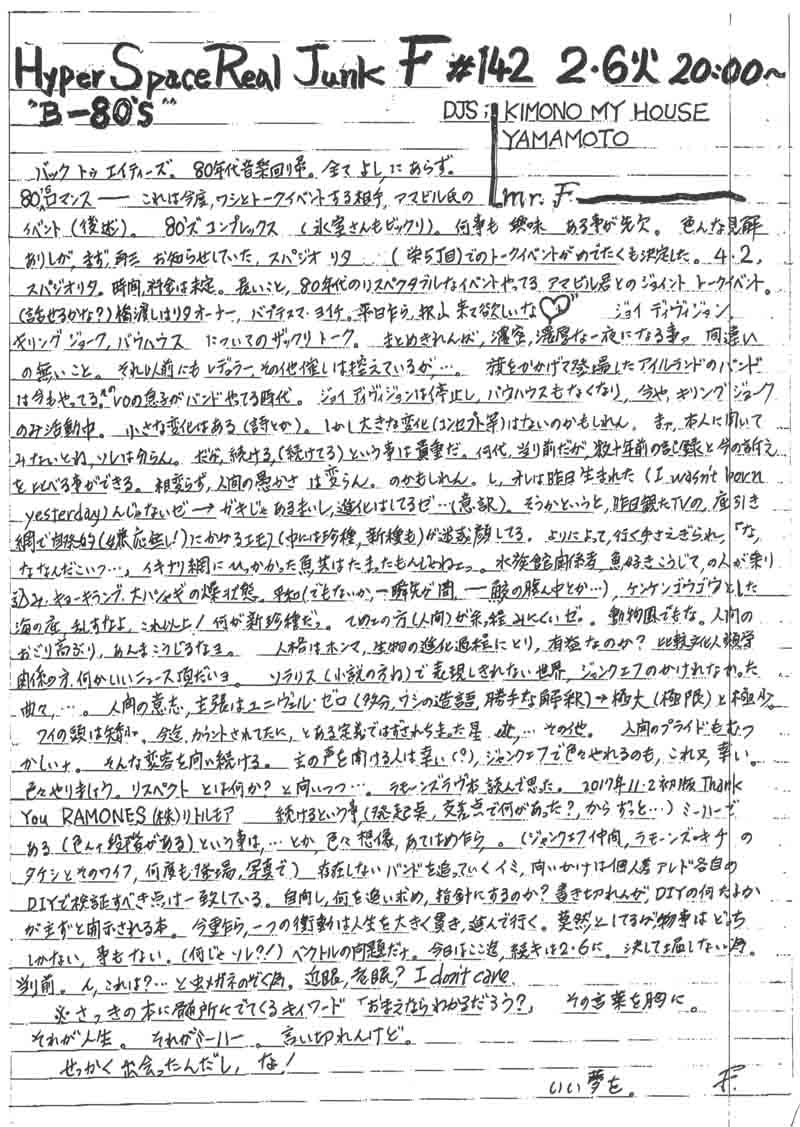 Hyper Space Real Junk F #142 2・6火 20:00~
"B-80's"
DJS; KIMONO MY HOUSE
YAMAMOTO
mr. F.
バック トゥ エイティーズ。80年代音楽回り帯。全て よし,にあらず。
80'sロマンス ― これは今度,ワシとトークイベントする相手,アマビル氏の
イベント(後述)。80'ズ コンプレックス (氷室さんもビックリ)。何事も 興味 ある事が先欠。色んな見解
ありしが,まず,所三 お知らせしていた,スパジオ リタ (栄5丁目)でのトークイベントがめでたくも決定した。4・2,
スパジオリタ。時間,料金は未定。長いこと,80年代のリスペクタブルなイベントやってる アマビル君とのジョイント トークイベント。
(話せるかな?)橋渡しはリタオーナー,バプテスマ・ヨイチ。平日乍ら,沢山 来て欲しいな♡" ジョイ ディヴィジョン,
キリング ジョーク,バウハウス についてのザックリ トーク。まとめきれんが,濃密,濃厚な一夜になる事ァ 間違い
の無いこと。それ以前にも レデュラー,その他催しは控えているが,…。旗をかかげて登場したアイルランドのバンド
は今もやってる。そのVOの息子がバンドやってる時代。ジョイ ディヴィジョンは停止し,バウハウスもなくなり,今や,キリング ジョーク
のみ活動中。小さな変化はある(詩とか)。しかし大きな変化(コンセプト等)はないのかもしれん。まァ,本人に聞いて
みないとね,ソレは分らん。だが,続ける,(続けてる)という事は貴重だ。何代,当り前だが,数十年前の記録と今の訴え
を比べる事ができる。相変らず,人間の愚かさ は変らん。のかもしれん。し,オレは昨日生まれた(I wasn't born
yesterday)んじゃないゼ → ガキじゃあるまいし,進化はしてるゼ…(意訳)。そうかというと,昨日観たTVの,底引き
網で自然的(4襟応無し!)にかかるエモノ(中には珍種,新種も)が迷惑顔してる。よりによって,行く手さえぎられ,「な,
ななんだこいつ…」イキナリ網に ひっかかった魚共はたまったもんじゃねェっ。水族館関係者,魚好きこうじて,の人が乗り
込み,キョーキランブ,大ハシャギの燥状態。平和(でもないか,一瞬先が闇,― 鮫の腹ん中とか…),ケンケンゴウゴウとした
海の底,乱すなよ,これ以上!何が新珍種だっ。てめェの方(人間)が余っ程みにくいゼ。動物園でもな。人間の
おごり高ぶり,あんまこうじるなョ。人格はホンマ,生物の進化過程にとり,有益なのか? 比較文化人類学
関係の方,何かいいニュース頂だいヨ。ソラリス(小説の方ね)で表現しきれない世界,ジャンクエフのかけれなかった
曲々,…。人間の意志,主張はユニヴェル・ゼロ(多分,ワシの造語,勝手な解釈)→極大(極限)と極少。
ワイの頭は矮小。今迄,カウントされてたに,とある定義でははずされち走った星 此,… その他。人間のプライドもむつ
かしいナ。そんな変容を問い続ける。玄の声を聞ける人は幸い(?),ジャンクエフで色々やれるのも,これ又,幸い。
色々やりましょう。リスペクト とは何か? と問いつつ…。ラモーンズラヴを 読んで思った。2017年11・2初版 Thank
You RAMONES (株)リトルモア 続けるという事,(発起点,交差点で何があった?,から ずっと…) ミーハーで
ある(色んな段階がある)という事は,… とか,色々想像,あてはめ乍ら,。(ジャンクエフ仲間,ラモーンズ・キチ の
タケシとそのワイフ,何度も登場,写真で) 存在しないバンドを追っていくイミ,問いかけは個人差アレド各自の
DIYで検証すべき点は一致している。自問し,何を追い求め,指針にするのか? 書き切れんが,DIYの何たるか
が自ずと開示される本。今更乍ら,一つの衝動は人生を大きく貫き,進んで行く。莫然としてるが,物事は どっち
しかない,事もない。(何じゃ ソレ?!) ベクトルの問題だナ。今日はここ迄,続きは2・6に。決して屈しない為。
当り前。ん,これは?… と虫メガネのぞく為。近眼,老眼? I don't care.
※さっきの本に随所にでてくるキィワード「おまえならわかるだろう?」 その言葉を胸に。
それが人生。それがミーハー。言い切れんけど。
せっかく 出会ったんだし,な!
いい夢を。 F.